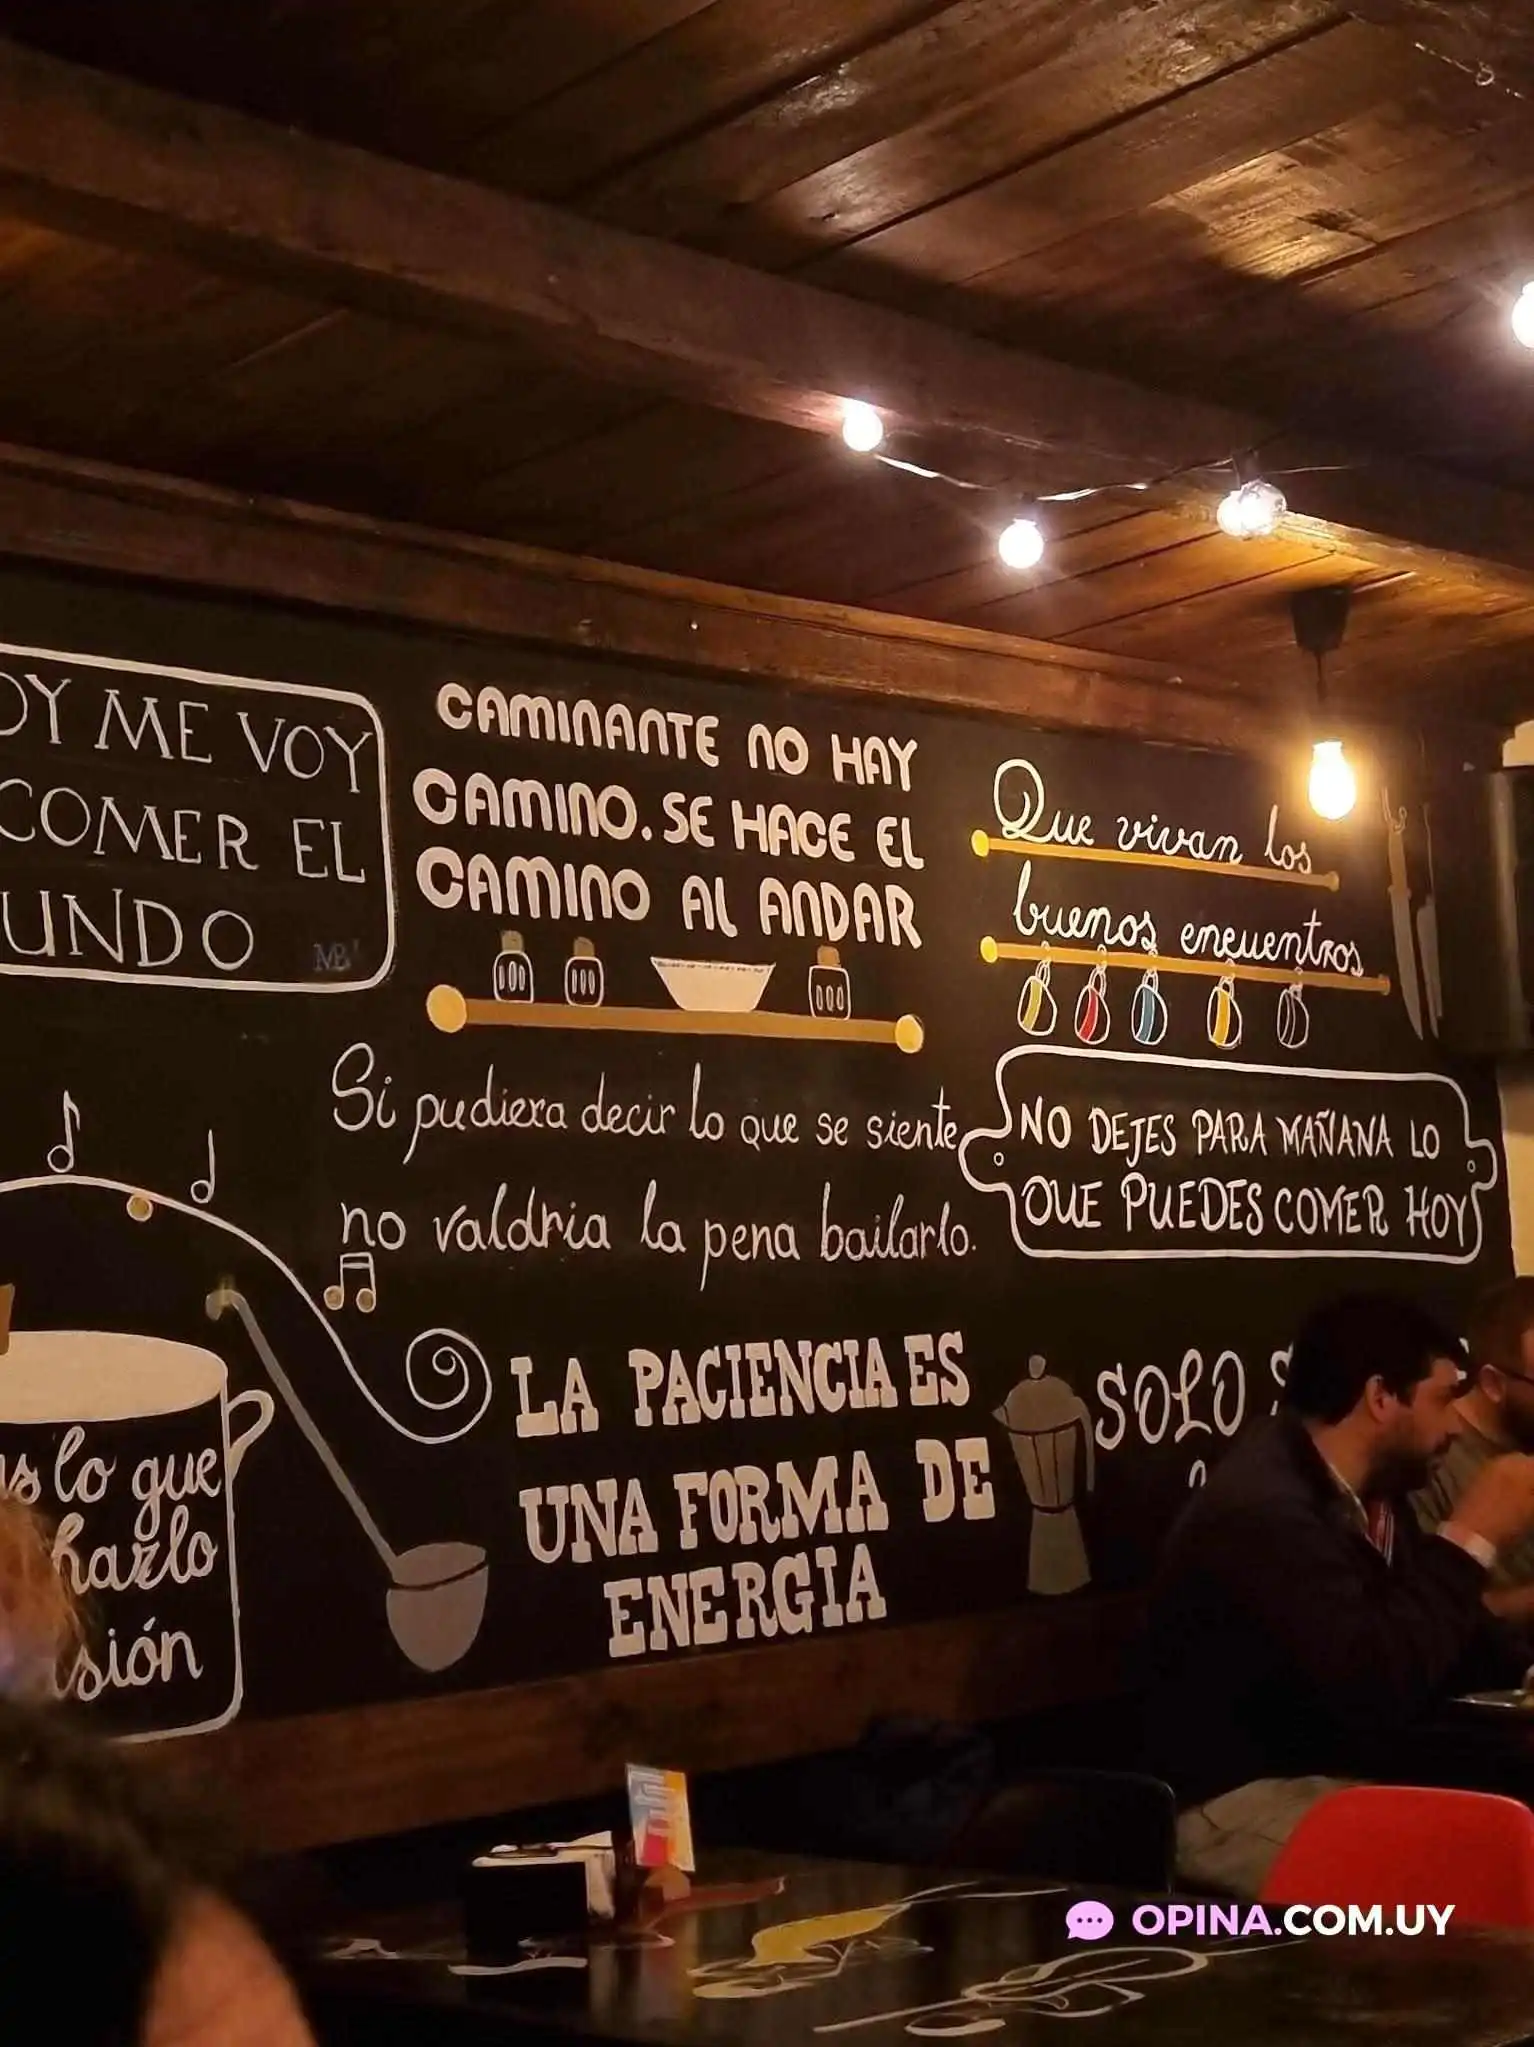 ME VOY
COMER EL
MB
CAMINANTE NO HAY
CAMINO. SE HACE EL
CAMINO AL ANDAR
Que vivan los
buenos encuentros
Si pudiera decir lo que se siente
no valdria la pena bailarlo.
NO DEJES PARA MAÑANA LO
QUE PUEDES COMER HOY
lo que
LA PACIENCIA ES
UNA FORMA DE
ENERGIA
SOLO
OPINA.COM.UY